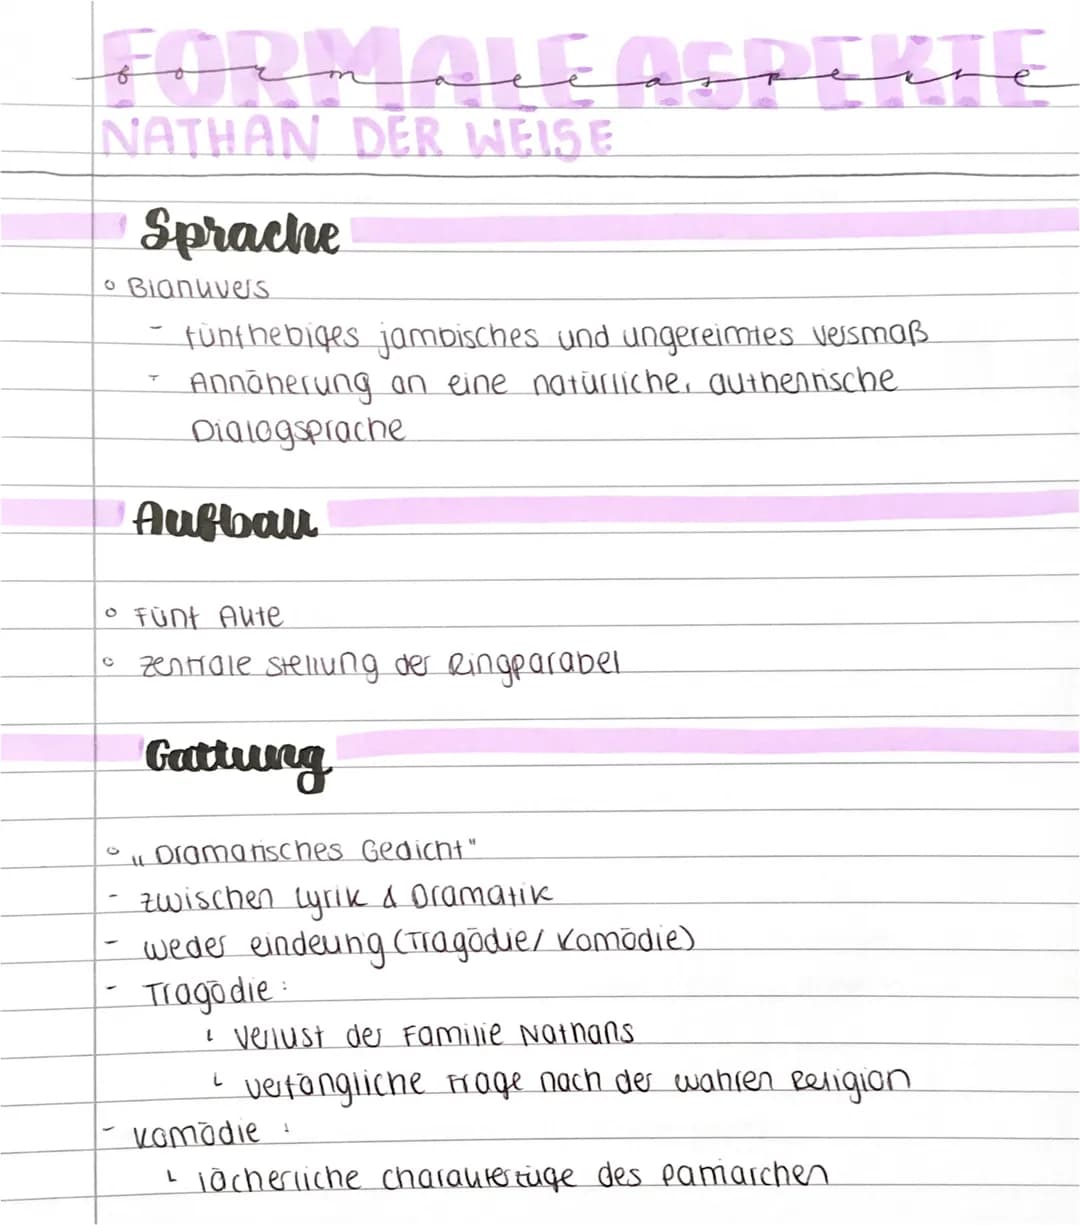 FORMALE ASPEKTE
formale aspekte
NATHAN DER WEISE
Sprache
° Blankvers
- fünfhebiges jambisches und ungereimtes Versmaß
- Annäherung an eine natürliche, authentische
Dialogsprache
Aufbau
° Fünf Akte
° zentrale Stellung der Ringparabel
Gattung
° „Dramatisches Gedicht"
- zwischen Lyrik & Dramatik
- weder eindeutig (Tragödie/ Komödie)
- Tragödie:
↳ Verlust der Familie Nathans
↳ verfängliche Frage nach der wahren Religion
- Komödie:
↳ lächerliche Charakterzüge des Patriarchen